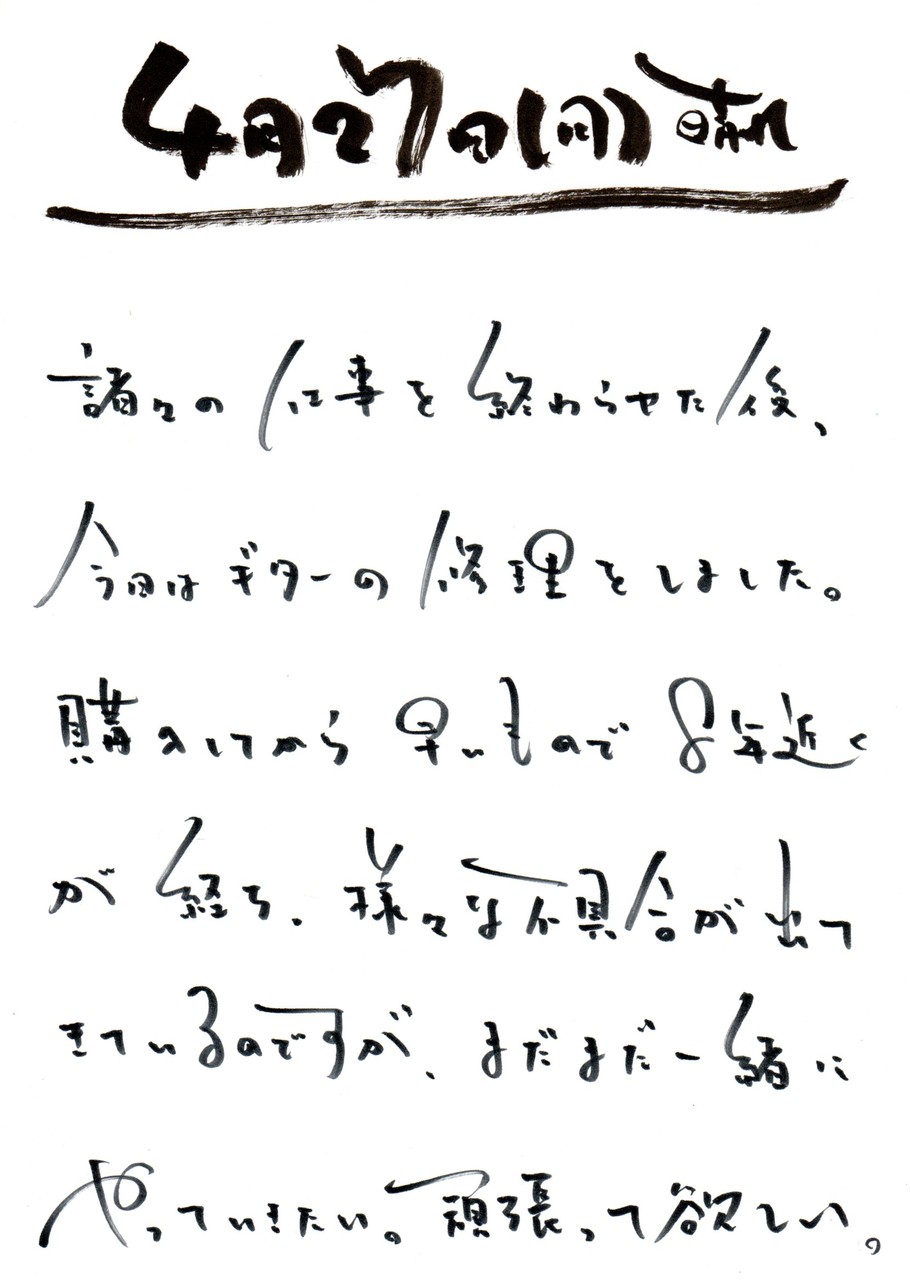 4月27日(月) 晴れ
諸々の仕事を終わらせた後、
今日はギターの修理をしました。
購入してから早いもので8年近く
が経ち、様々な不具合が出て
きているのですが、まだまだ一緒に
やっていきたい。頑張って欲しい。